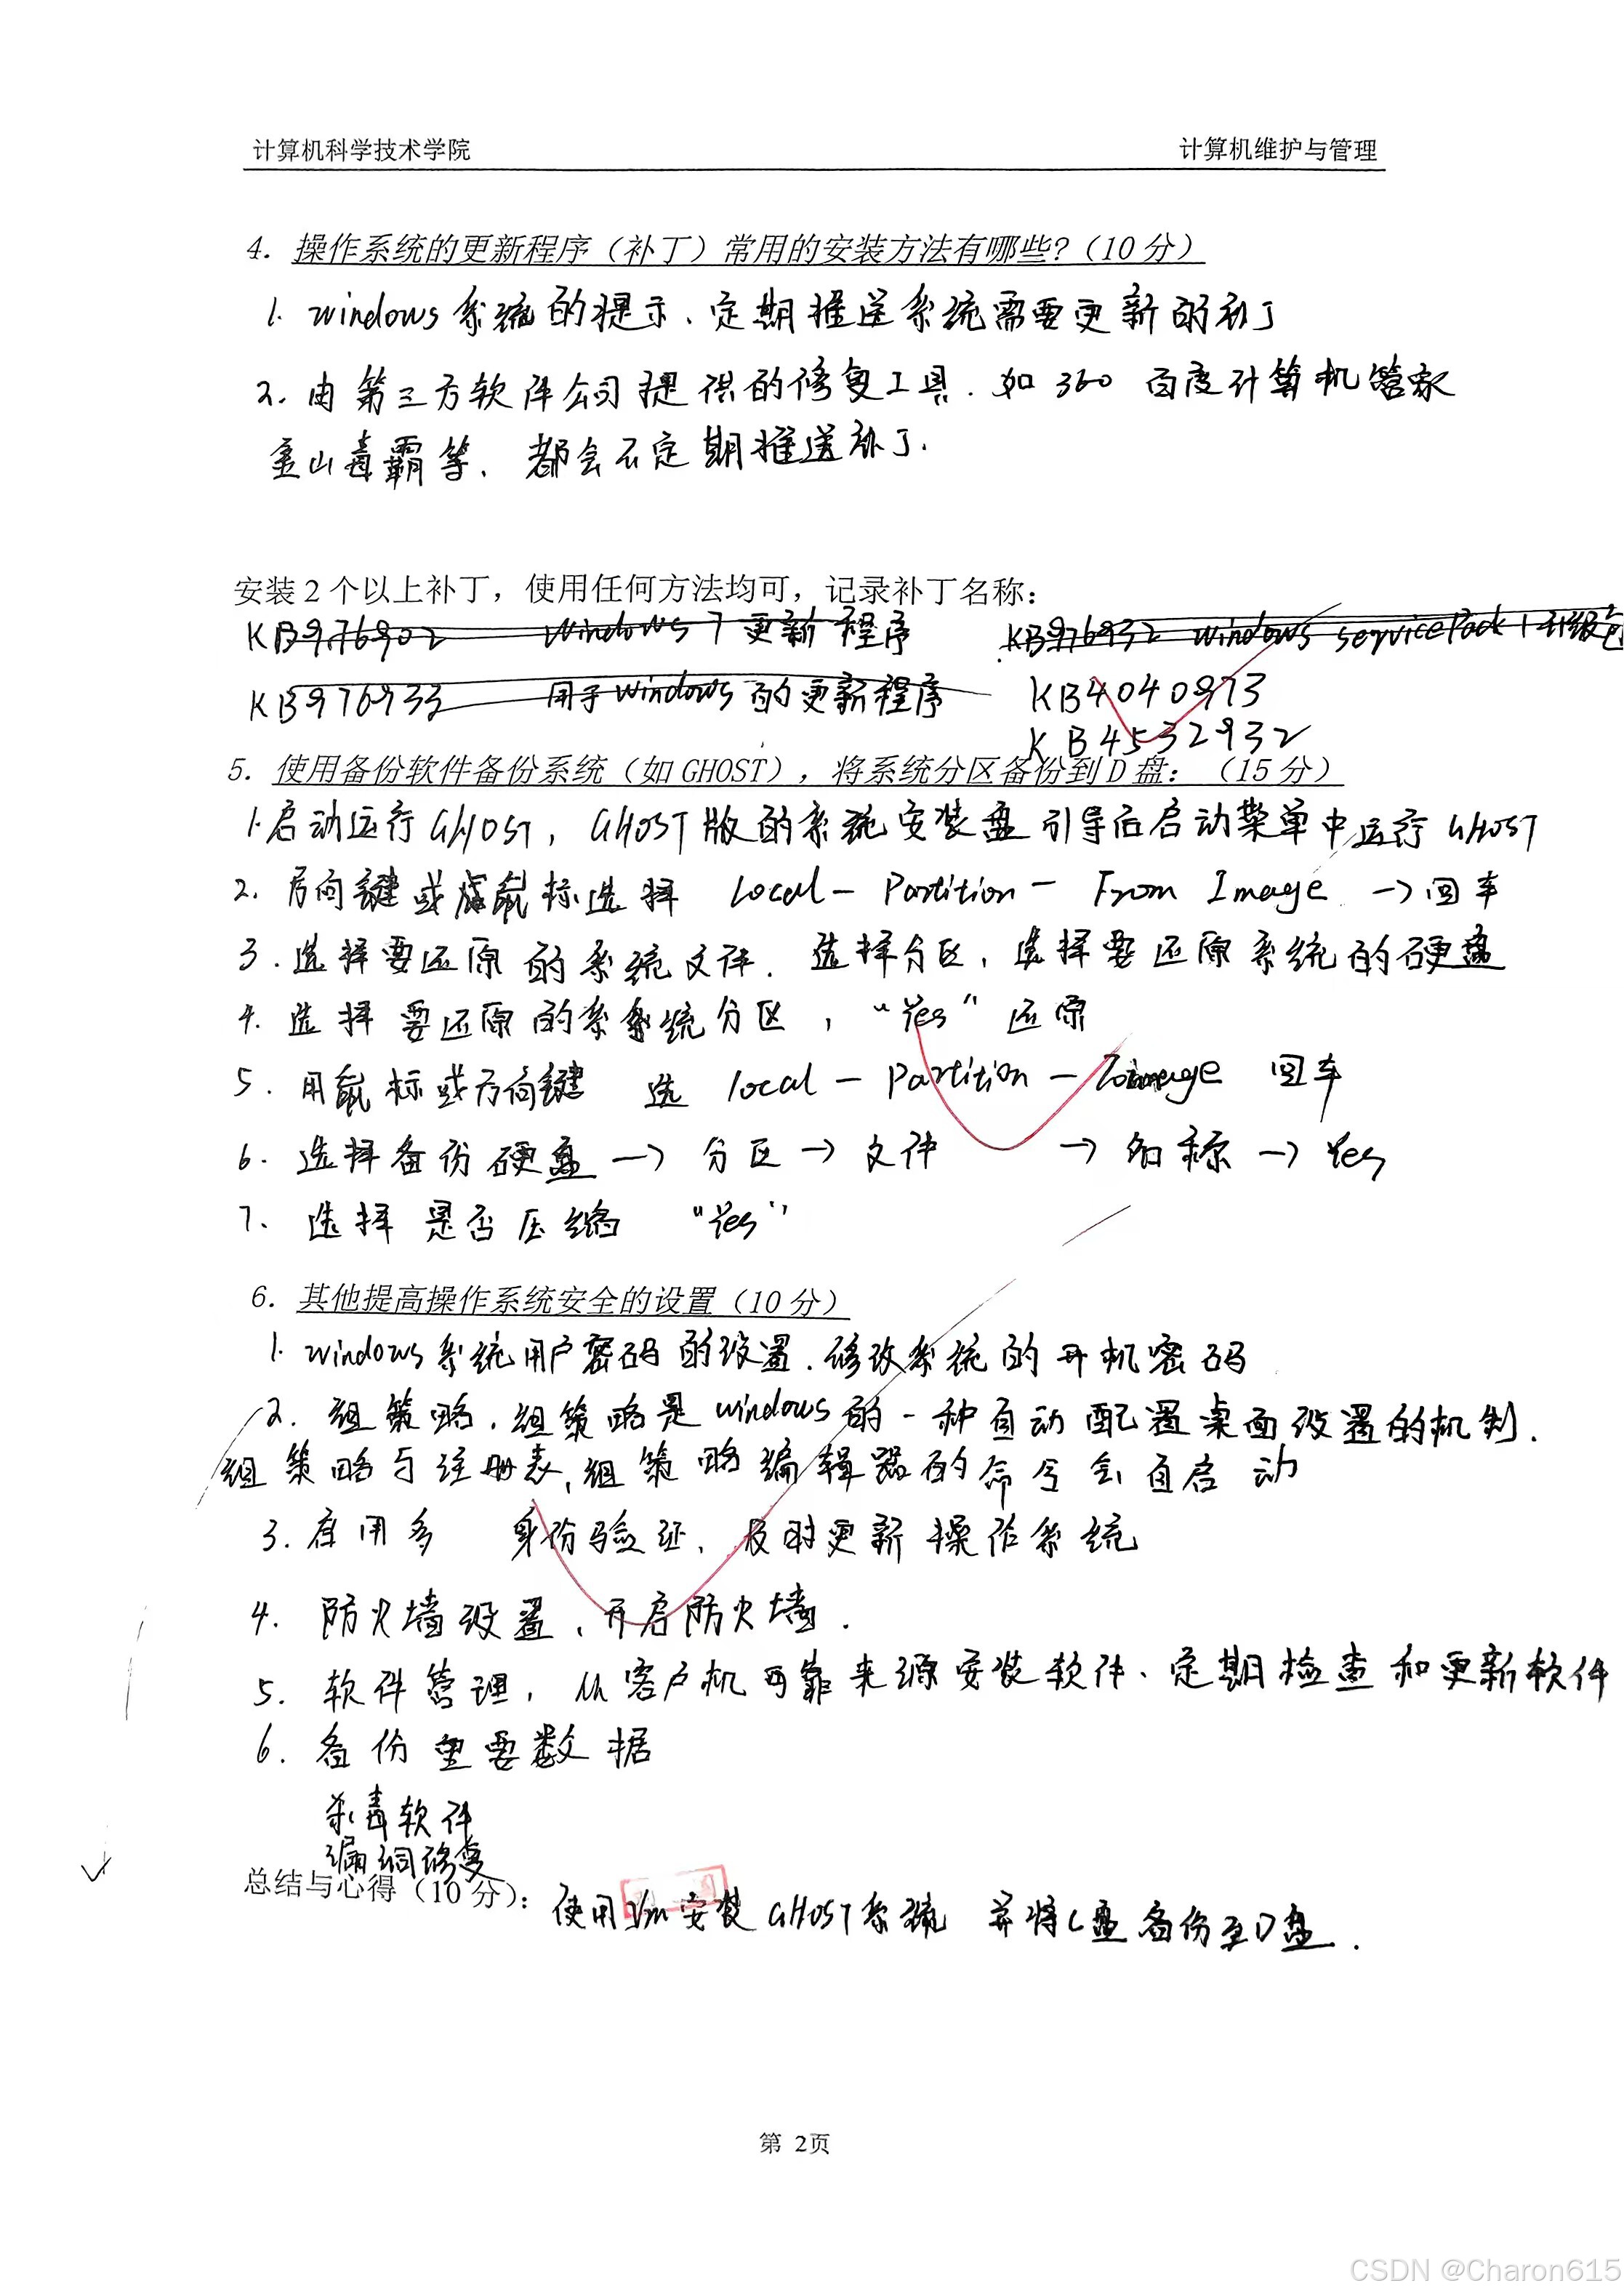 计算机科学技术学院 计算机维护与管理
4. 操作系统的更新程序（补丁）常用的安装方法有哪些?（10 分）
1. windows 系统的提示、定期推送系统需要更新的补丁
2. 由第三方软件公司提供的修复工具. 如 360 百度计算机管家
金山毒霸等、都会不定期推送补丁.
安装 2 个以上补丁，使用任何方法均可，记录补丁名称：
KB976902 Windows 7 更新程序 KB976932 windows servicePack 1 升级包
KB976933 用于windows 的更新程序 KB4040973
KB4532932
5. 使用备份软件备份系统（如 GHOST），将系统分区备份到 D 盘：（15 分）
1.启动运行 GHOST，GHOST版的系统安装盘引导后启动菜单中运行 GHOST
2. 方向键或鼠标选择 Local - Partition - From Image → 回车
3. 选择要还原的系统文件. 选择分区，选择要还原系统的硬盘
4. 选择要还原的系统分区，“Yes” 还原
5. 用鼠标或方向键 选 local - Partition - 回车
6. 选择备份硬盘 → 分区 → 文件 → 名称 → Yes
7. 选择是否压缩 “Yes”
6. 其他提高操作系统安全的设置（10 分）
1. windows 系统用户密码的设置. 修改系统的开机密码
2. 组策略. 组策略是 windows 的一种自动配置桌面设置的机制.
组策略与注册表, 组策略编辑器的命令会自启动
3. 应用多 身份验证、及时更新操作系统
4. 防火墙设置、开启防火墙.
5. 软件管理，从客户机可靠来源安装软件、定期检查和更新软件
6. 备份重要数据
杀毒软件
漏洞修复
总结与心得（10 分）：使用Vm安装 GHOST系统 并将C盘备份至D盘.
第 2页
CSDN @Charon615